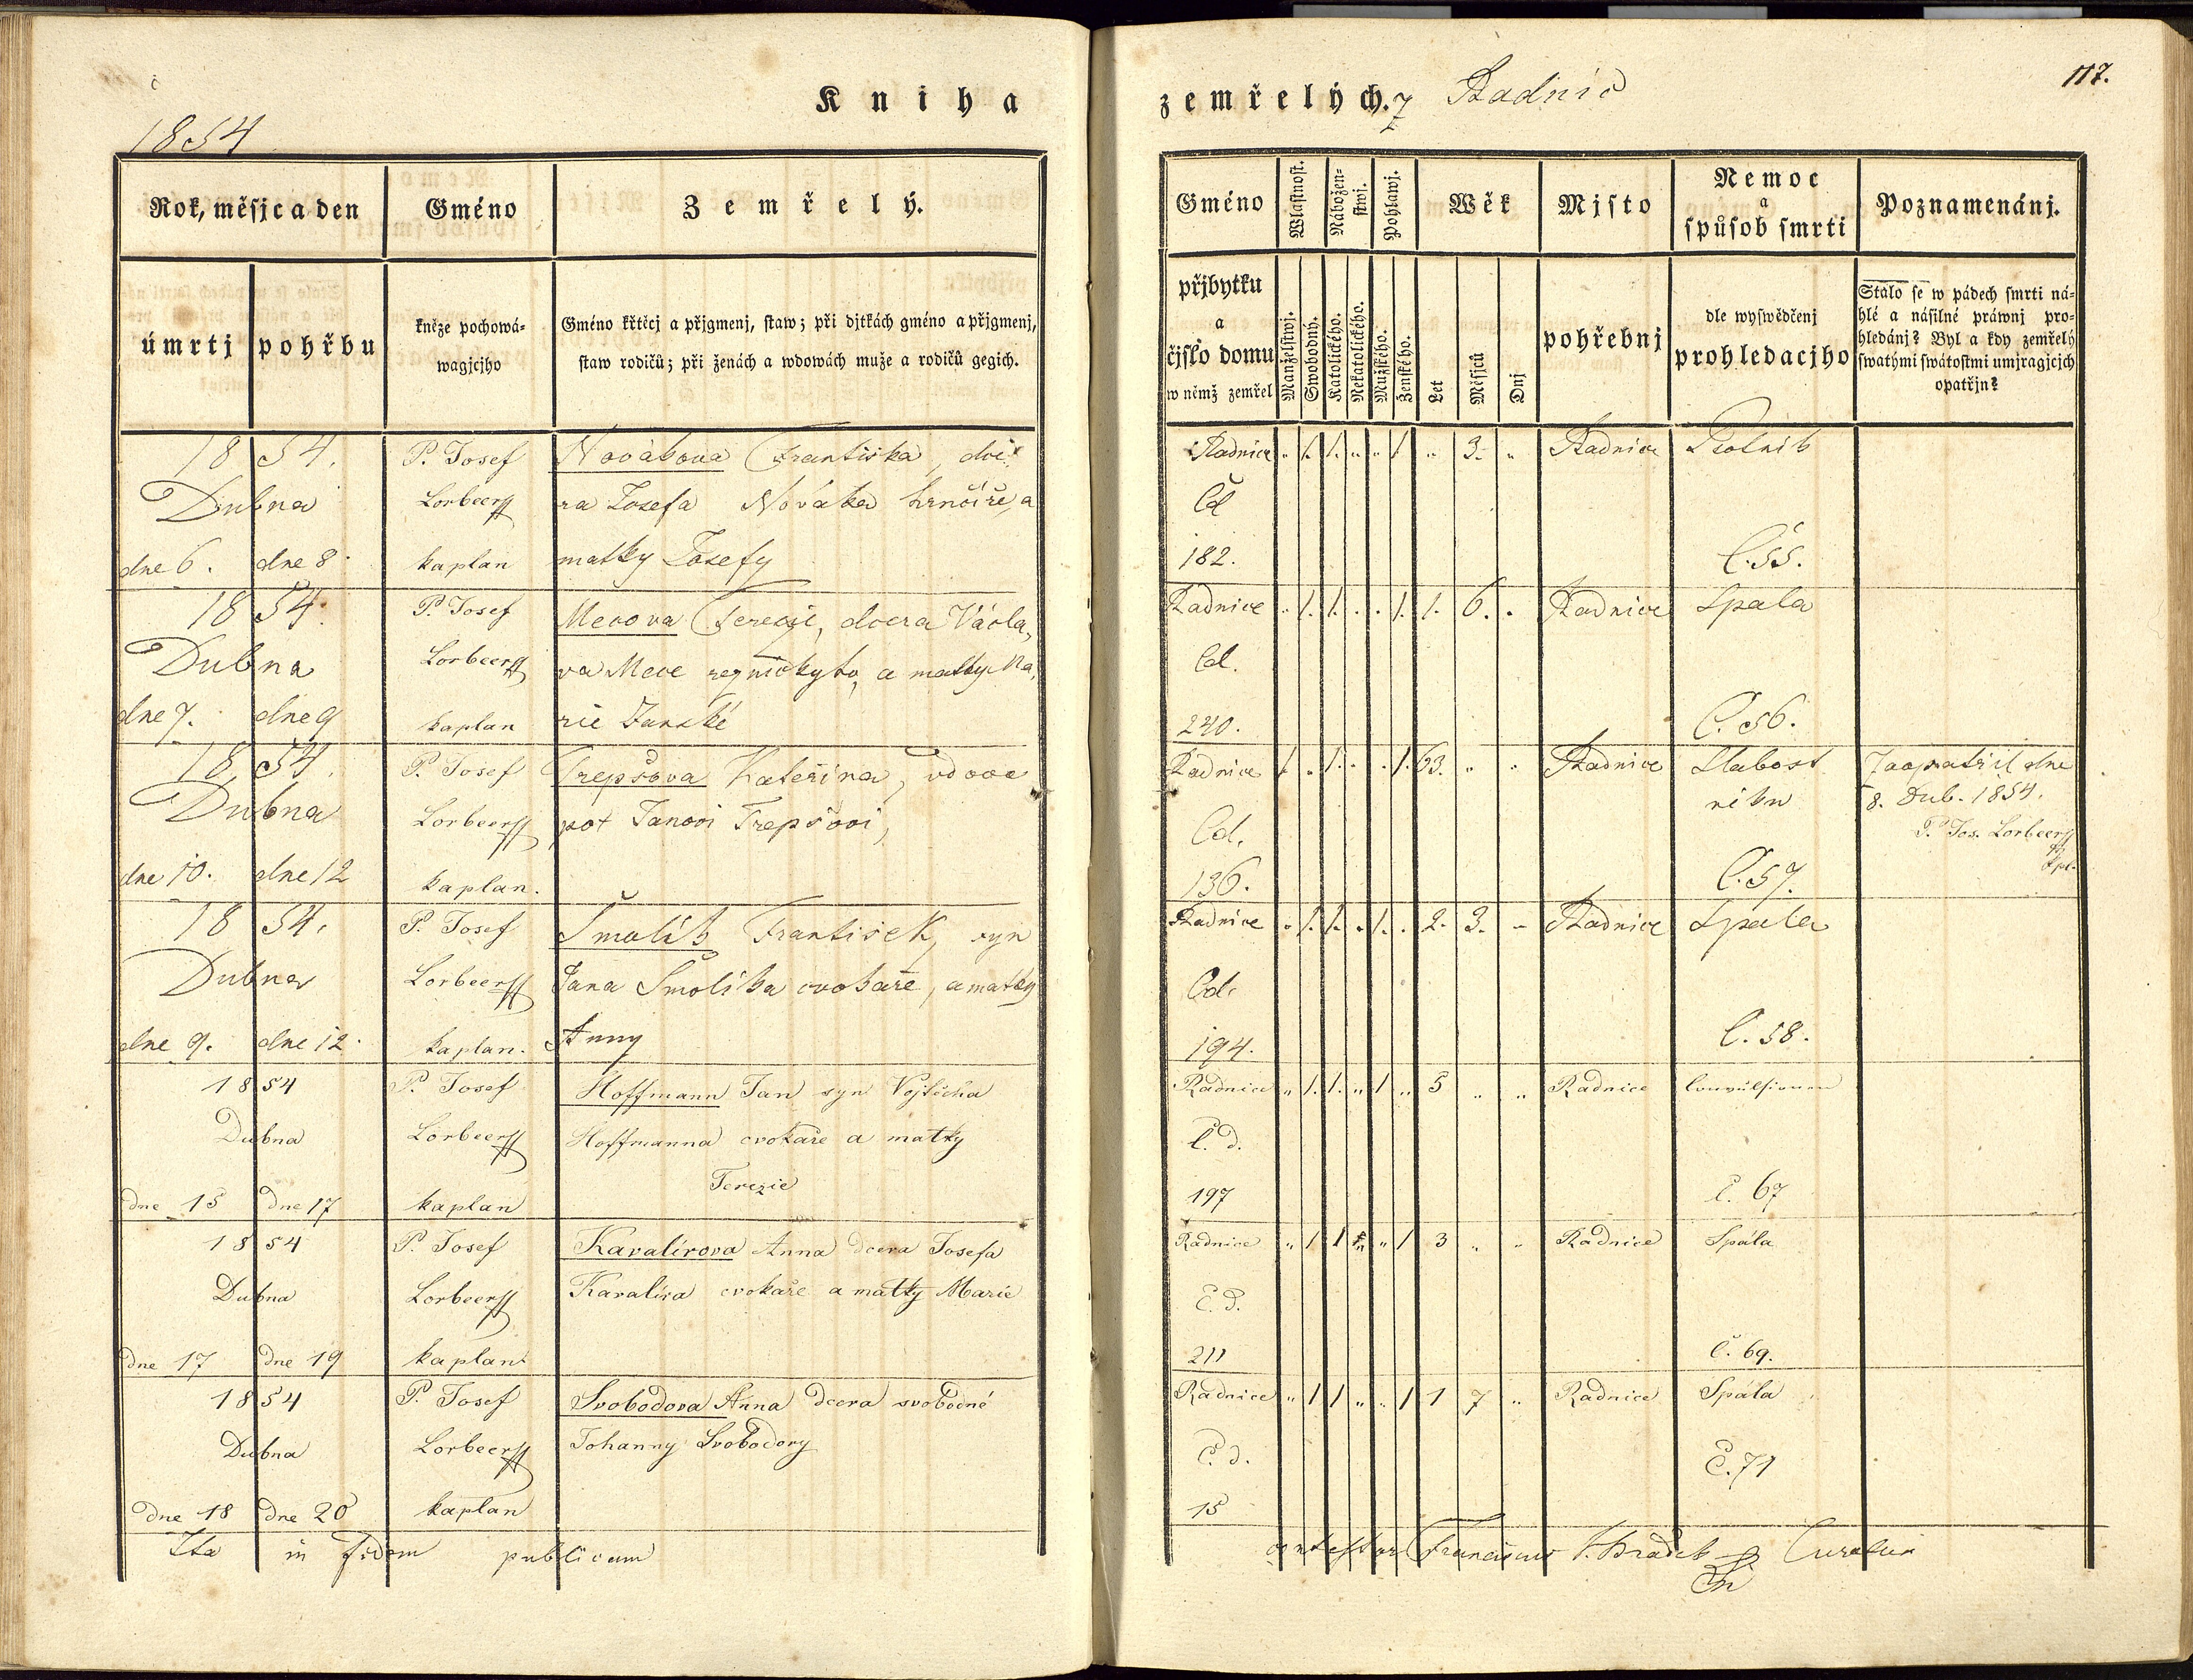 Kniha
1854
Rok, měsjc a den
Gméno
Zemřelý.
úmrtj
pohřbu
kněze pochowá-
wagjcjho
Gméno křtěcj a přjgmenj, staw; při djtkách gméno a přjgmenj,
staw rodičů; při ženách a wdowách muže a rodičů gegich.
1854.
P. Josef
Novákova Františka, dce
Dubna
Lorbeer
ra Josefa Nováka hrnčíře, a
dne 6. dne 8.
kaplan
matky Josefy
1854.
P. Josef
Mecova Terezie, dcera Václa,
Dubna
Lorbeer
va Mece a matky Ma,
dne 7. dne 9
kaplan
rie
1854.
P. Josef
Trepšova Kateřina, vdova
Dubna
Lorbeer
po† Janovi Trepšovi,
dne 10. dne 12
kaplan.
1854.
P. Josef
Šmolík František, syn
Dubna
Lorbeer
Jana Šmolíka cvokaře, a matky
dne 9. dne 12.
kaplan.
Anny
1854
P. Josef
Hoffmann Jan syn Vojtěcha
Dubna
Lorbeer
Hoffmanna cvokaře a matky
Terezie
dne 15 dne 17
kaplan
1854
P. Josef
Kavalírova Anna dcera Josefa
Dubna
Lorbeer
Kavalíra cvokaře a matky Marie
dne 17 dne 19
kaplan
1854
P. Josef
Svobodova Anna dcera svobodné
Dubna
Lorbeer
Johanny Svobodovy
dne 18 dne 20
kaplan
Ita in fidem publicam
zemřelých. z Radnic
117.
Gméno
Wlastnost.
Nábožen-
stwj.
Pohlawj.
Wěk
Mjsto
Nemoc
a
spůsob smrti
Poznamenánj.
přjbytku
a
čjslo domu
w němž zemřel
Manželstwj.
Swobodný.
Katolického.
Nekatolického.
Mužského.
Ženského.
Let
Měsjců
Dnj
pohřebnj
dle wyswědčenj
prohledacjho
Stalo se w pádech smrti ná-
hlé a násilné práwnj pro-
hledánj? Byl a kdy zemřelý
swatými swátostmi umjragjcjch
opatřjn?
Radnice „ 1. 1. „ „ 1. „ 3. „ Radnice Psotník
Čd
182.
Č. 55.
Radnice „ 1. 1. „ „ 1. 1. 6. „ Radnice Spála
Čd.
240.
Č. 56.
Radnice 1. „ 1. „ „ 1. 63. „ „ Radnice Slabost
věku
Zaopatřil dne
8. Dub. 1854.
P. Jos. Lorbeer
kpl.
Čd.
136.
Č. 57.
Radnice „ 1. 1. „ 1. „ 2. 3. „ Radnice Spála
Čd.
194.
Č. 58.
Radnice „ 1. 1. „ 1 „ 5 „ „ Radnice Convulsionen
Č. d.
197
Č. 67
Radnice „ 1 1 „ „ 1 3 „ „ Radnice Spála
Č. d.
211
Č. 69.
Radnice „ 1 1 „ „ 1 1 7 „ Radnice Spála
Č. d.
15
Č. 71
contestor Franciscus Hradek Curatus